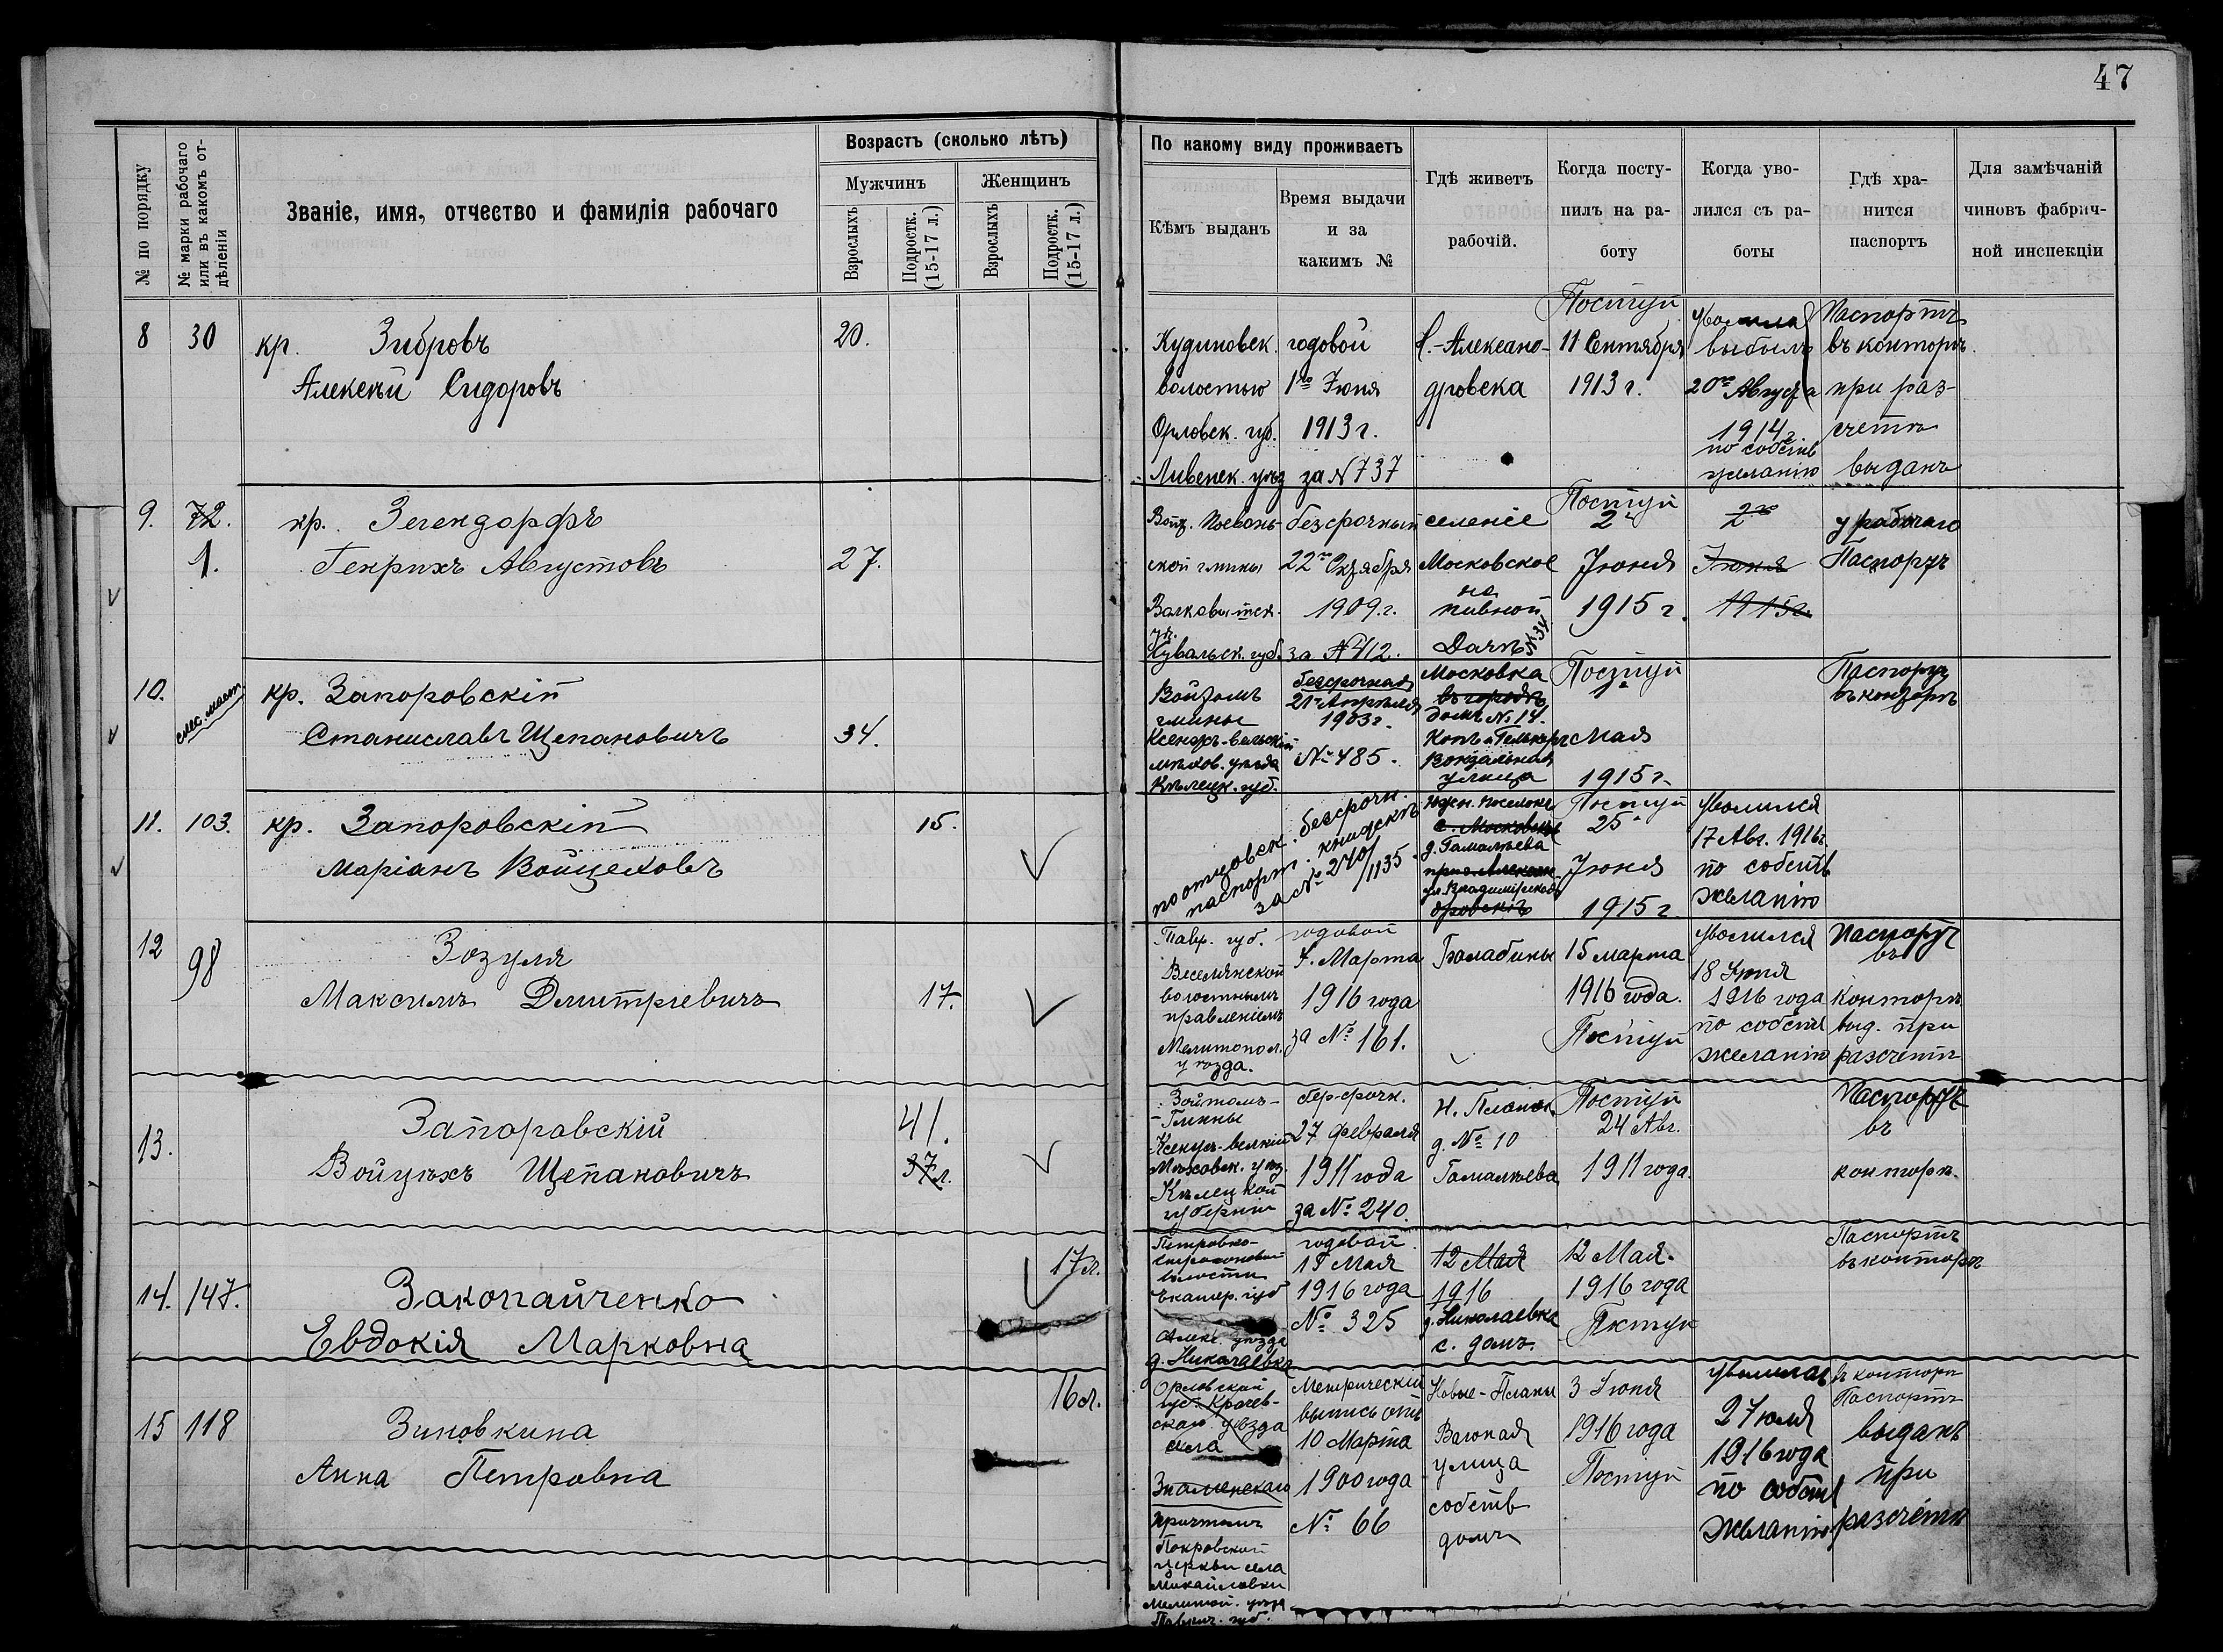 47
№ по порядку
№ марки рабочаго или въ какомъ отдѣленіи
Званіе, имя, отчество и фамилія рабочаго
Возрастъ (сколько лѣтъ)
Мужчинъ
Женщинъ
Взрослыхъ
Подростк. (15-17 л.)
Взрослыхъ
Подростк. (15-17 л.)
По какому виду проживаетъ
Кѣмъ выданъ
Время выдачи
и за
какимъ №
Гдѣ живетъ
рабочій.
Когда посту-
пилъ на ра-
боту
Когда уво-
лился съ ра-
боты
Гдѣ хра-
нится
паспортъ
Для замѣчаній
чиновъ фабрич-
ной инспекціи
8 30
кр. Зибровъ
Алексѣй Сидоровъ
20.
Кудиновск.
волостью
Орловск. губ.
Ливенск. уѣз
годовой
1го Іюня
1913 г.
за № 737
С.-Алексано-
дровска
Поступ
11 Сентября
1913 г.
выбылъ
20го Августа
1914 г
по собств
желанію
Паспортъ
въ конторѣ
при раз-
счетѣ
выданъ
9. 72.
1.
кр. Зегендорфъ
Генрихъ Августовъ
27.
ской гмины
губ.
безсрочный
22го Октября
1909. г.
за № 412.
селеніе
Московское
на
пивной
Дачѣ № 34
Поступ
2го
Іюня
1915 г.
2го
Іюня
1915 г.
у рабочаго
Паспортъ
10.
слес. маст
кр. Запоровскій
Станиславъ Щепановичъ
34.
Войтомъ
гмины
Ксенжъ-вельскій
мѣхов. уѣзда
Кѣлецк. губ.
безсрочная
21го Апрѣля
1903 г.
№ 485.
Московка
въ городѣ
домъ № 14.
Вокзальная
улица
Поступ
1го
Мая
1915 г.
Паспортъ
въ конторѣ
11. 103.
кр. Запоровскій
Маріанъ Войцеховъ
15.
по отцовск. безсрочн.
паспорт. книжкѣ
за № 240/1135
Южн. поселокъ
с. Московка
д. Гамалѣева
ул. Владимірская
дровскъ
Поступ
25го
Іюня
1915 г
Уволился
17 Авг. 1916 г.
по собств
желанію
12 98
Зозуля
Максимъ Дмитріевичъ
17.
Тавр. губ.
Веселянской
волостнымъ
правленіемъ
Мелитопол.
уѣзда.
годовой
7. Марта
1916 года
за № 161.
Балабины
15 марта
1916 года.
Поступ
уволился
18 Іюня
1916 года
по собств
желанію
Паспортъ
въ
конторѣ
выд. при
разсчетѣ
13.
Запоравскій
Войцѣхъ Щепановичъ
41.
37 л.
Войтомъ-
Гмины
Ксенжъ-велкій
Мѣховск. уѣз.
Кѣлецкой
губерніи
безсрочн.
27 Февраля
1911 года
за № 240.
Н. Планы
д. № 10
Гамалѣева
Поступ
24 Авг.
1911 года.
Паспортъ
въ
конторѣ.
14. 147.
Закопайченко
Евдокія Марковна
17 л.
Петровко-
волости
Екатер. губ
Алекс. уѣзда
д. Николаевка
годовой.
18 Мая
1916 года
№ 325
12 Мая
1916
д. Николаевка
с. домъ.
12 Мая.
1916 года
Поступ
Паспортъ
въ конторѣ
15 118
Зиновкина
Анна Петровна
16 л.
Орловской
губ.
скаго уѣзда
села
Знаменскаго
причтомъ
Покровской
церкви села
Михайловки
Мелитоп. уѣзд
Таврич. губ.
Метрическій
выпись отъ
10 Марта
1900 года
№ 66
Новые-Планы
улица
собств
домъ
3 Іюня
1916 года
Поступ
уволилась
27 юля
1916 года
по собств
желанію
въ конторѣ
Паспортъ
выданъ
при
разсчетѣ